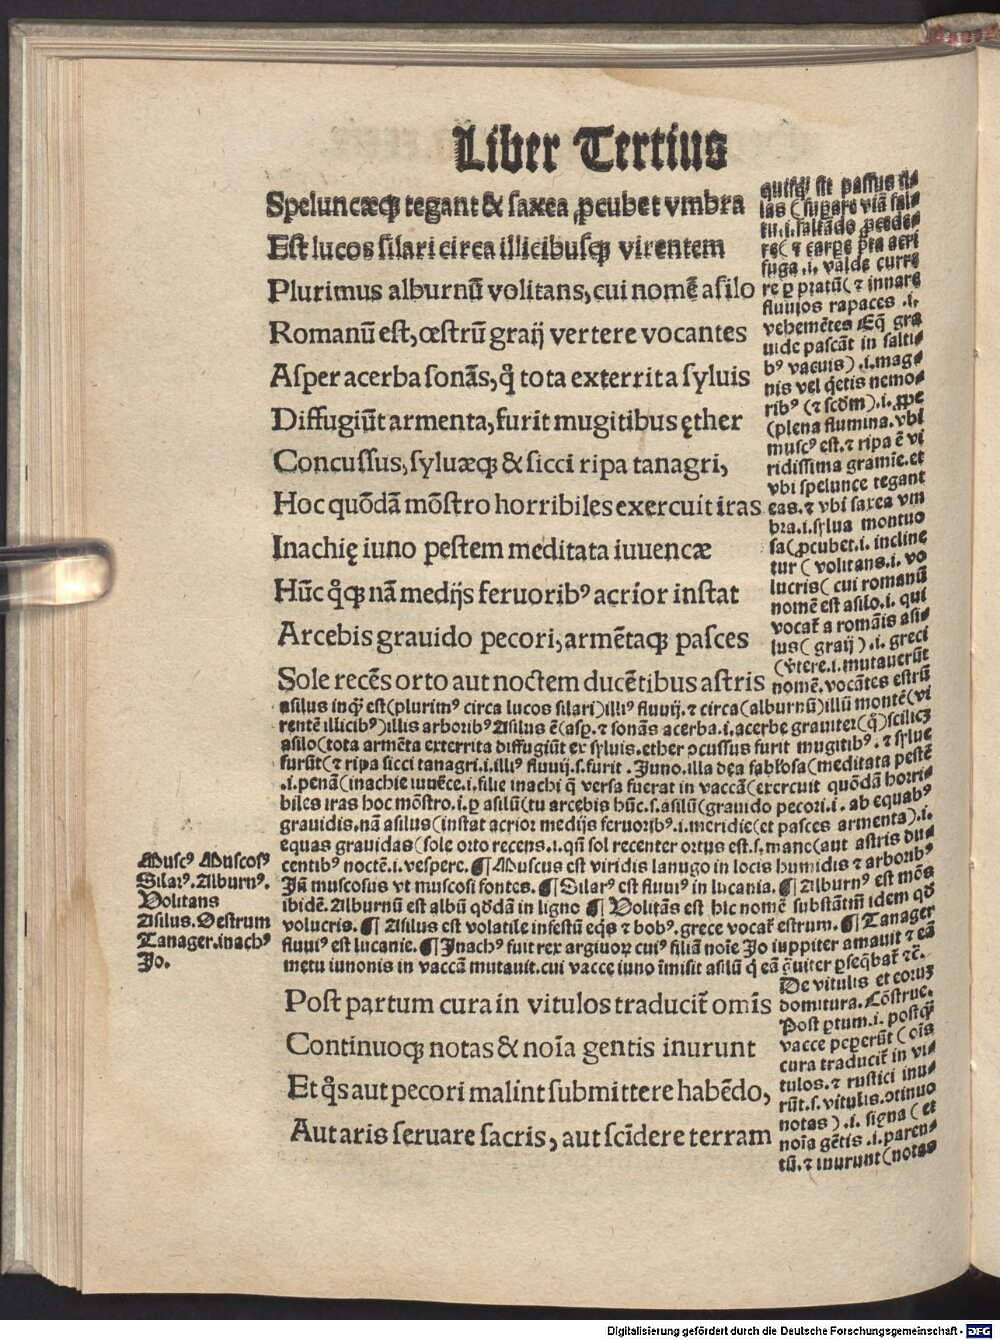 Liber Tertius
Speluncæq̃ tegant & ſaxea ꝓcubet vmbra
Eſt lucos ſilari circa illicibuſq̃ virentem
Plurimus alburnũ volitans, cui nomẽ aſilo
Romanũ eſt, œſtrũ graij vertere vocantes
Aſper acerba ſonãs, q̊ tota exterrita ſyluis
Diffugiũt armenta, furit mugitibus ęther
Concuſſus, ſyluæq̃ & ſicci ripa tanagri,
Hoc quõdã mõſtro horribiles exercuit iras
Inachię iuno peſtem meditata iuuencæ
Hũc q̊q̃ nã medijs feruoribꝰ acrior inſtat
Arcebis grauido pecori, armẽtaq̃ paſces
Sole recẽs orto aut noctem ducẽtibus aſtris
quiſq̃ ſit paſſus ſi⸗
las (ſuꝑare viã ſal⸗
tu .i. ſaltãdo ꝓcede⸗
re( ⁊ carpe pꝛa acri
fuga .i. valde curre
re ꝑ pꝛatũ( ⁊ innare
fluuios rapaces .i.
vehemẽtes Eq̃ gra
uide paſcãt in ſalti⸗
bꝰ vacuis) .i. mag⸗
nis vel q̃etis nemo⸗
ribꝰ (⁊ ſcðm) .i. ꝓpe
(plena flumina. vbi
muſcꝰ eſt. ⁊ ripa ẽ vi
ridiſſima gramĩe. et
vbi ſpelunce tegant
eas. ⁊ vbi ſaxea vm
bra .i. ſylua montuo
ſa( ꝓcubet .i. incline
tur ( volitans .i. vo
lucris( cui romanũ
nomẽ eſt aſilo .i. qui
vocat̃ a romãis aſi⸗
lus( graij ) .i. greci
(v̓tere .i. mutauerũt
nomẽ. vocãtes eſtrũ
aſilus inq̃ eſt(plurimꝰ circa lucos ſilari)illiꝰ fluuij. ⁊ circa(alburnũ)illũ montẽ(vi
rentẽ illicibꝰ)illis arboribꝰ Aſilus ẽ(aſꝑ. ⁊ ſonãs acerba .i. acerbe grauiter(q̊)ſcilicꝫ
aſilo(tota armẽta exterrita diffugiũt ex ſyluis. ether ↄcuſſus furit mugitibꝰ. ⁊ ſylue
furũt(⁊ ripa ſicci tanagri .i. illiꝰ fluuij. ſ. furit . Juno. illa dea fabloſa(meditata peſtẽ
.i. penã(inachie iuuẽce .i. filie inachi q̃ verſa fuerat in vaccã(exercuit quõdã horri⸗
biles iras hoc mõſtro .i. ꝑ aſilũ(tu arcebis hũc. ſ. aſilũ(grauido pecori .i. ab equabꝰ
grauidis. nã aſilus(inſtat acrior medijs feruoribꝰ .i. meridie(et paſces armenta) .i.
equas grauidas(ſole orto recens .i. qñ ſol recenter ortus eſt. ſ. mane(aut aſtris du⸗
centibꝰ noctẽ .i. veſpere. ¶ Muſcus eſt viridis lanugo in locis humidis ⁊ arboribꝰ
Jñ muſcoſus vt muſcoſi fontes. ¶ Silarꝰ eſt fluuiꝰ in lucania. ¶ Alburnꝰ eſt mõs
ibidẽ. Alburnũ eſt albũ qðdã in ligno ¶ Volitãs eſt hic nomẽ ſubſtãtiũ idem qð
volucris. ¶ Aſilus eſt volatile infeſtũ eqꝭ ⁊ bobꝰ. grece vocat̃ eſtrum. ¶ Tanager
fluuiꝰ eſt lucanie. ¶ Jnachꝰ fuit rex argiuoꝝ cuiꝰ filiã noĩe Jo iuppiter amauit ⁊ eã
metu iunonis in vaccã mutauit. cui vacce iuno ĩmiſit aſilũ q̃ eã q̃uiter ꝑſeq̃bat̃ ⁊c̃.
Muſcꝰ Muſcoſꝰ
Silarꝰ. Alburnꝰ.
Volitans
Aſilus. Oeſtrum
Tanager. inachꝰ
Jo.
Poſt partum cura in vitulos traducit̃ omĩs
Continuoq̃ notas & noĩa gentis inurunt
Et q̊s aut pecori malint ſubmittere habẽdo,
Aut aris ſeruare ſacris, aut ſcĩdere terram
De vitulis et eoꝛuꝫ
domitura. Cõſtrue.
Poſt ꝑtum .i. poſtq̃
vacce peperũt ( oĩs
cura traducit̃ in vi⸗
tulos. ⁊ ruſtici inu⸗
rũt. ſ. vitulis. ↄtinuo
notas ) .i. ſigna ( et
noĩa gẽtis .i. paren⸗
tũ. ⁊ inurunt (notas
Digitalisierung gefördert durch die Deutsche Forschungsgemeinschaft - DFG